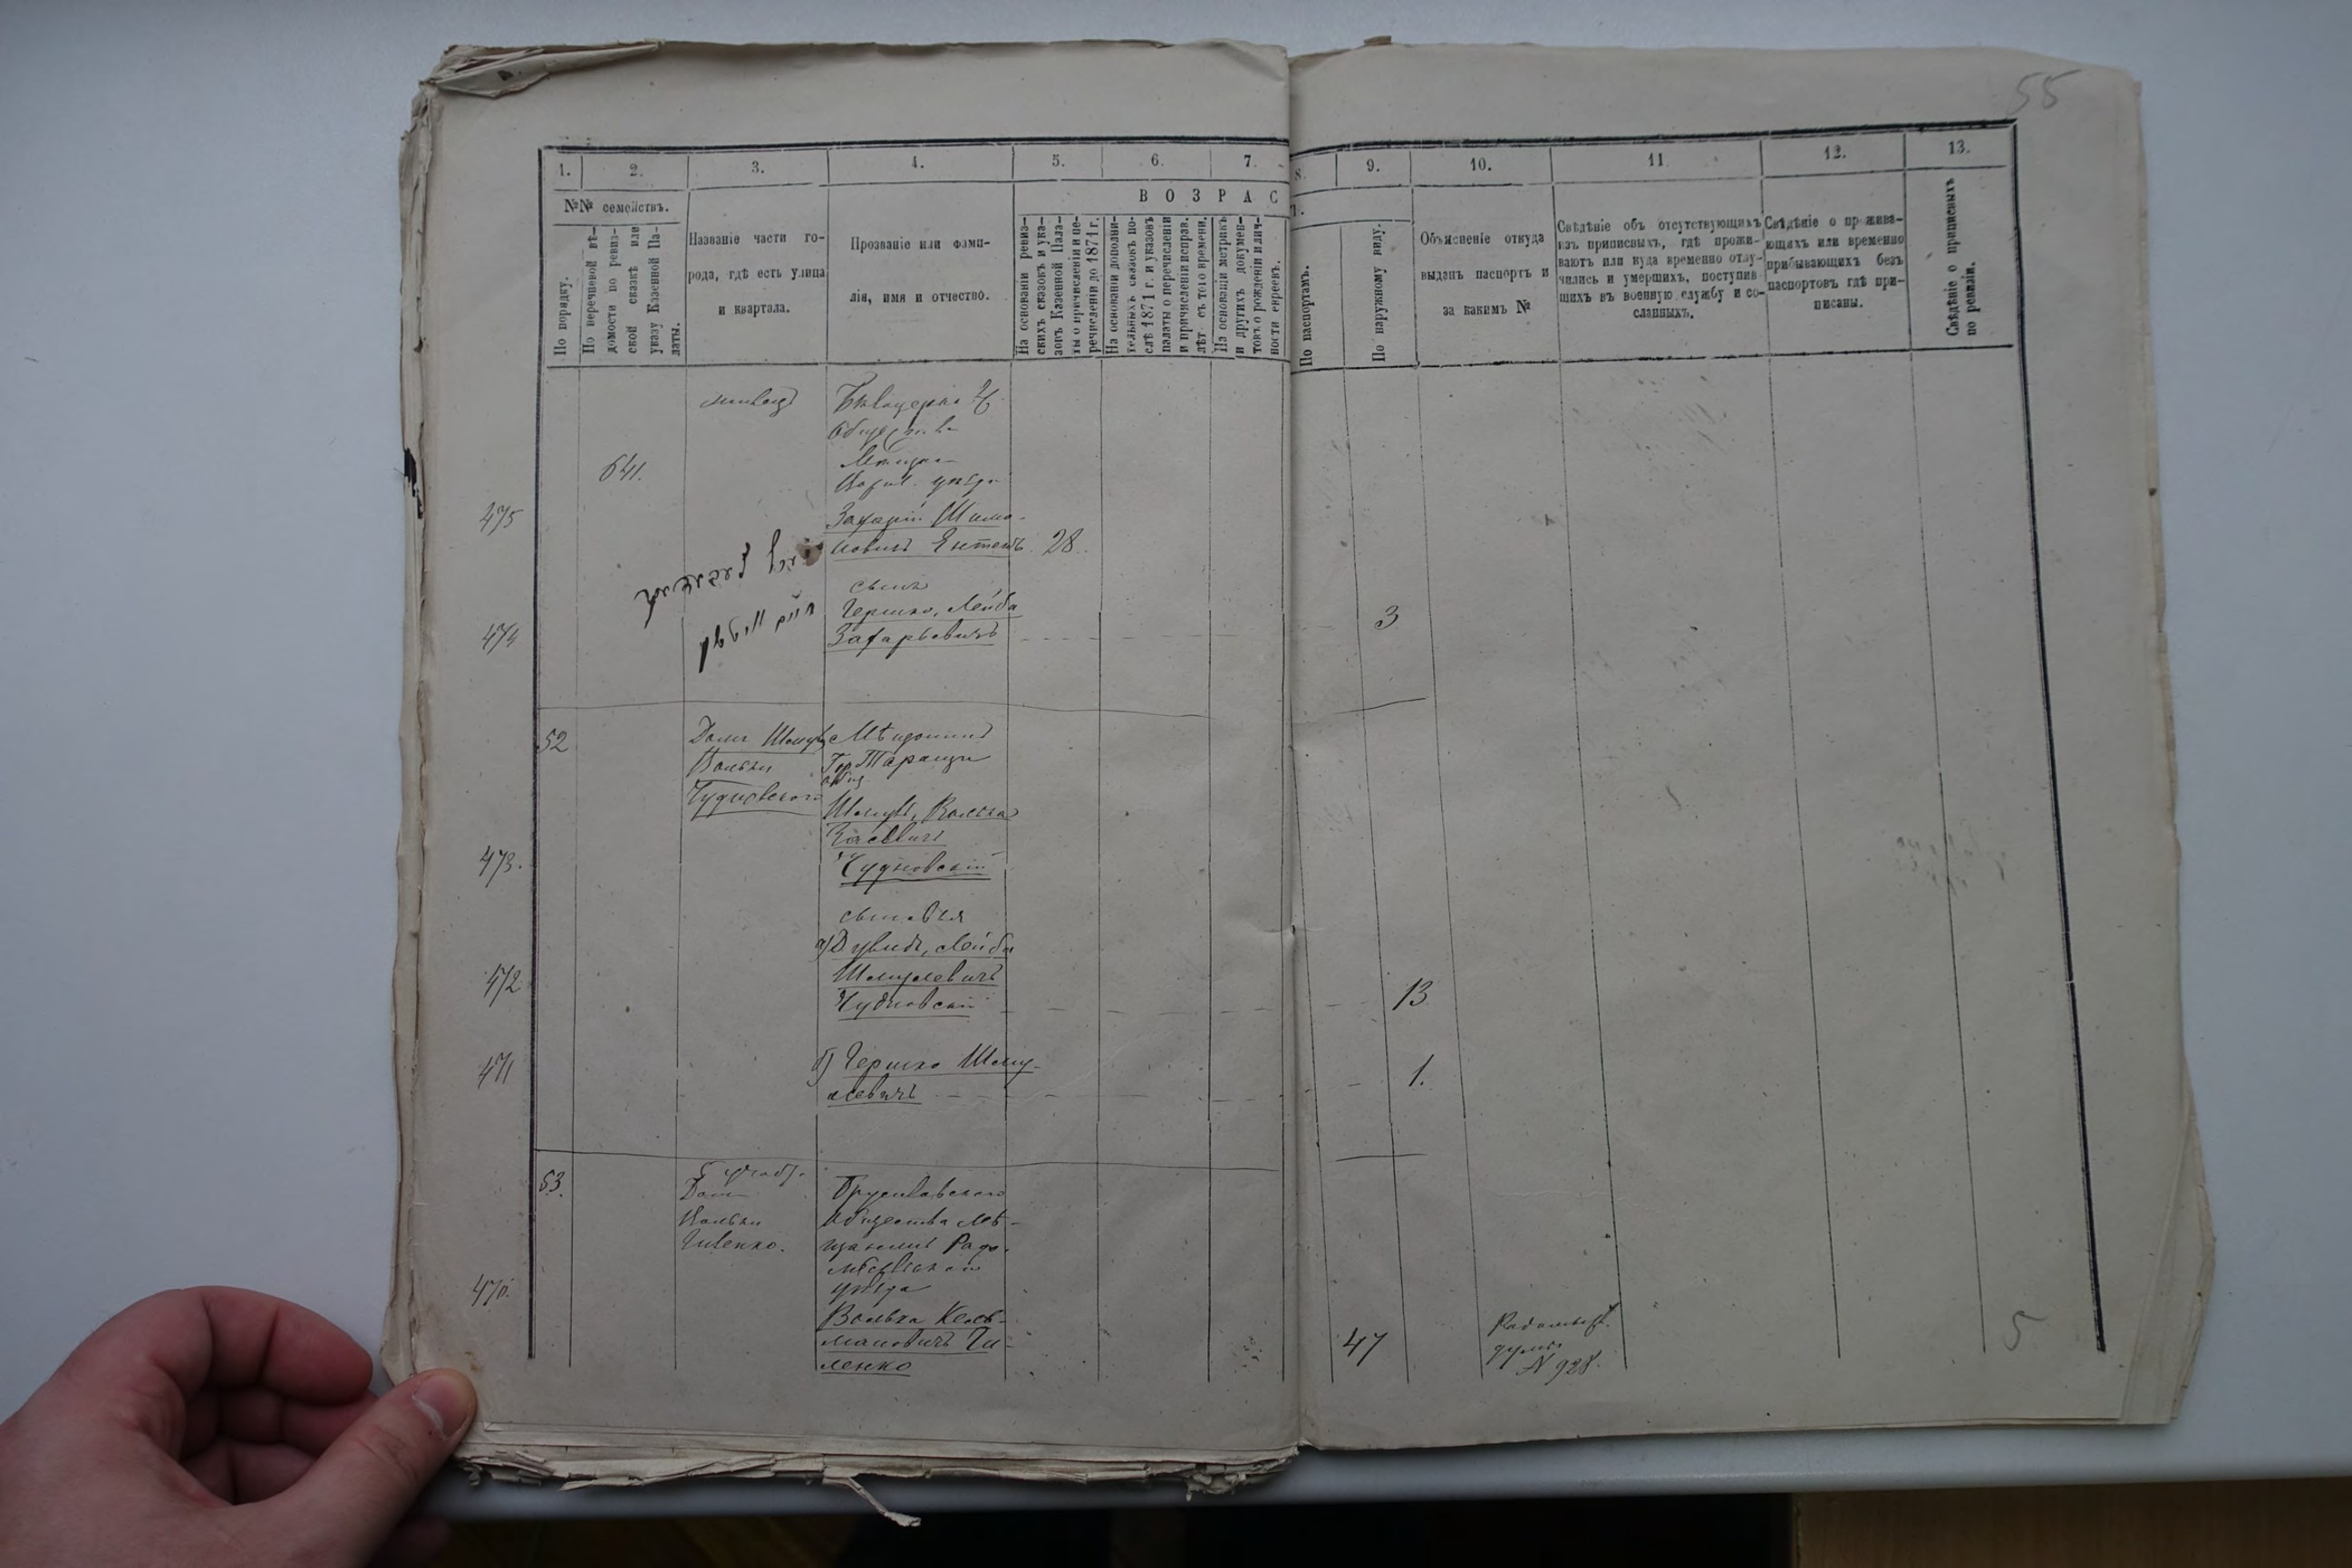 55
1.
2.
3.
4.
5.
6.
7.
8.
9.
10.
11
12.
13.
№№ семействъ.
По порядку.
По перечневой вѣ-
домости по ревиз-
ской сказкѣ или
указу Казенной Па-
латы.
Названіе части го-
рода, гдѣ есть улица
и квартала.
Прозваніе или фами-
лія, имя и отчество.
ВОЗРАС
Т.
На основаніи ревиз-
скихъ сказокъ и ука-
зовъ Казенной Пала-
ты о причисленіи и пе-
речисленіи до 1871 г.
На основаніи дополни-
тельныхъ сказокъ по-
слѣ 1871 г. и указовъ
палаты о перечисленіи
и причисленіи исправ.
лѣт. съ того времени.
На основаніи метрикъ
и другихъ докумен-
товъ о рожденіи и лич-
ности евреевъ.
По паспортамъ.
По наружному виду.
Объясненіе откуда
выданъ паспортъ и
за какимъ №
Свѣдѣніе объ отсутствующихъ
изъ приписвыхъ, гдѣ прожи-
ваютъ или куда временно отлу-
чились и умершихъ, поступив
шихъ въ военную службу и со-
сланныхъ.
Свѣдѣніе о прожива-
ющихъ или временно
прибывающихъ безъ
паспортовъ гдѣ при-
писаны.
Свѣдѣніе о приписвыхъ
по ревизіи.
641.
475
Захарій Шимо-
новичъ 28.
сынъ
Гершко, Лейба
474 Захарьевичъ 3
52 Домъ Шмуль Мѣщанинъ
Вольки Гор Таращи
Чудновского общ
Шмуль, Волька
473. Чудновскій
сыновья
а) Дувидъ, Лейба
472 Шмулевичъ
Чудновскій 13
471 б) Гершко Шму-
левичъ 1.
53. Домъ Брусиловского
Вольки общества мѣ-
Гиленко. щанинъ Радо-
мысльского
470. уѣзда
Волька Кель-
мановичъ Ги- 47
ленко
Радомысл.
думы
N 928.
5